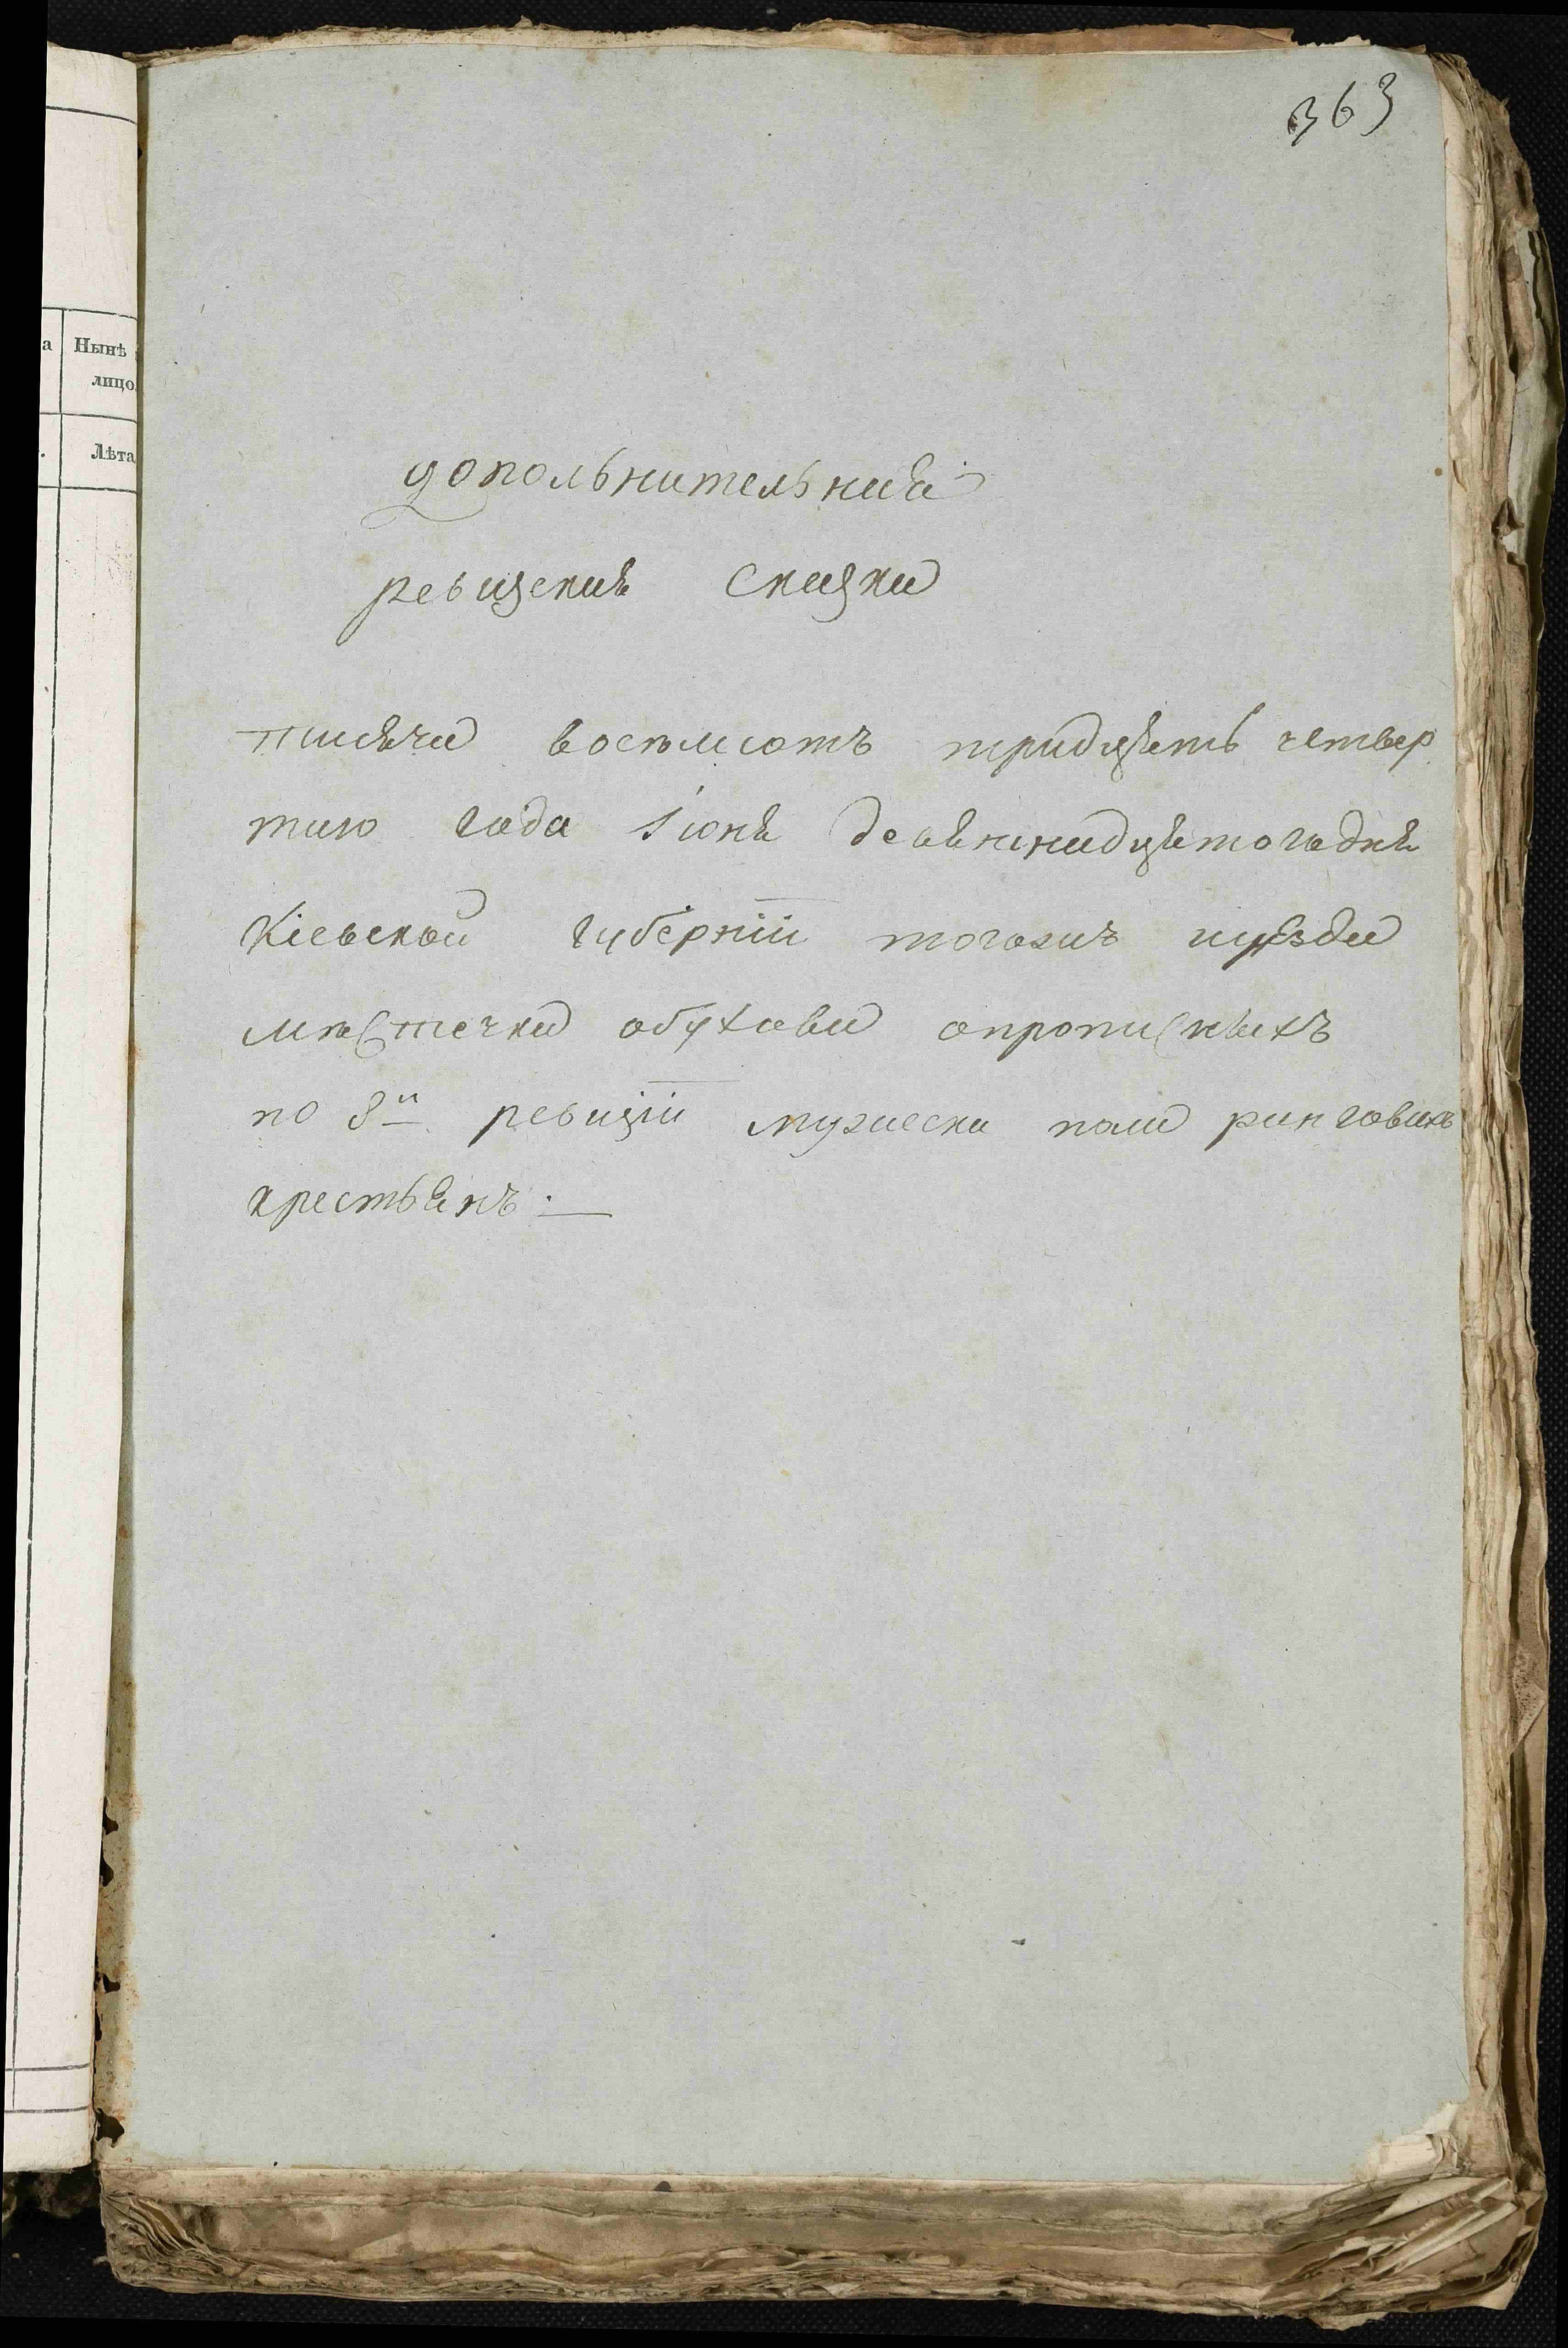 363
а Нынѣ
лицо
Лѣта
дополънителъная
ревизская сказка
тисяча восемсотъ тридцять четвер
таго года Іюня девянтнадцятогодня
Кіевской губерніи тогожъ уѣзда
мѣстечка обухова опрописныхъ
по 8й ревизіи мужеска пола
крестьянъ.—